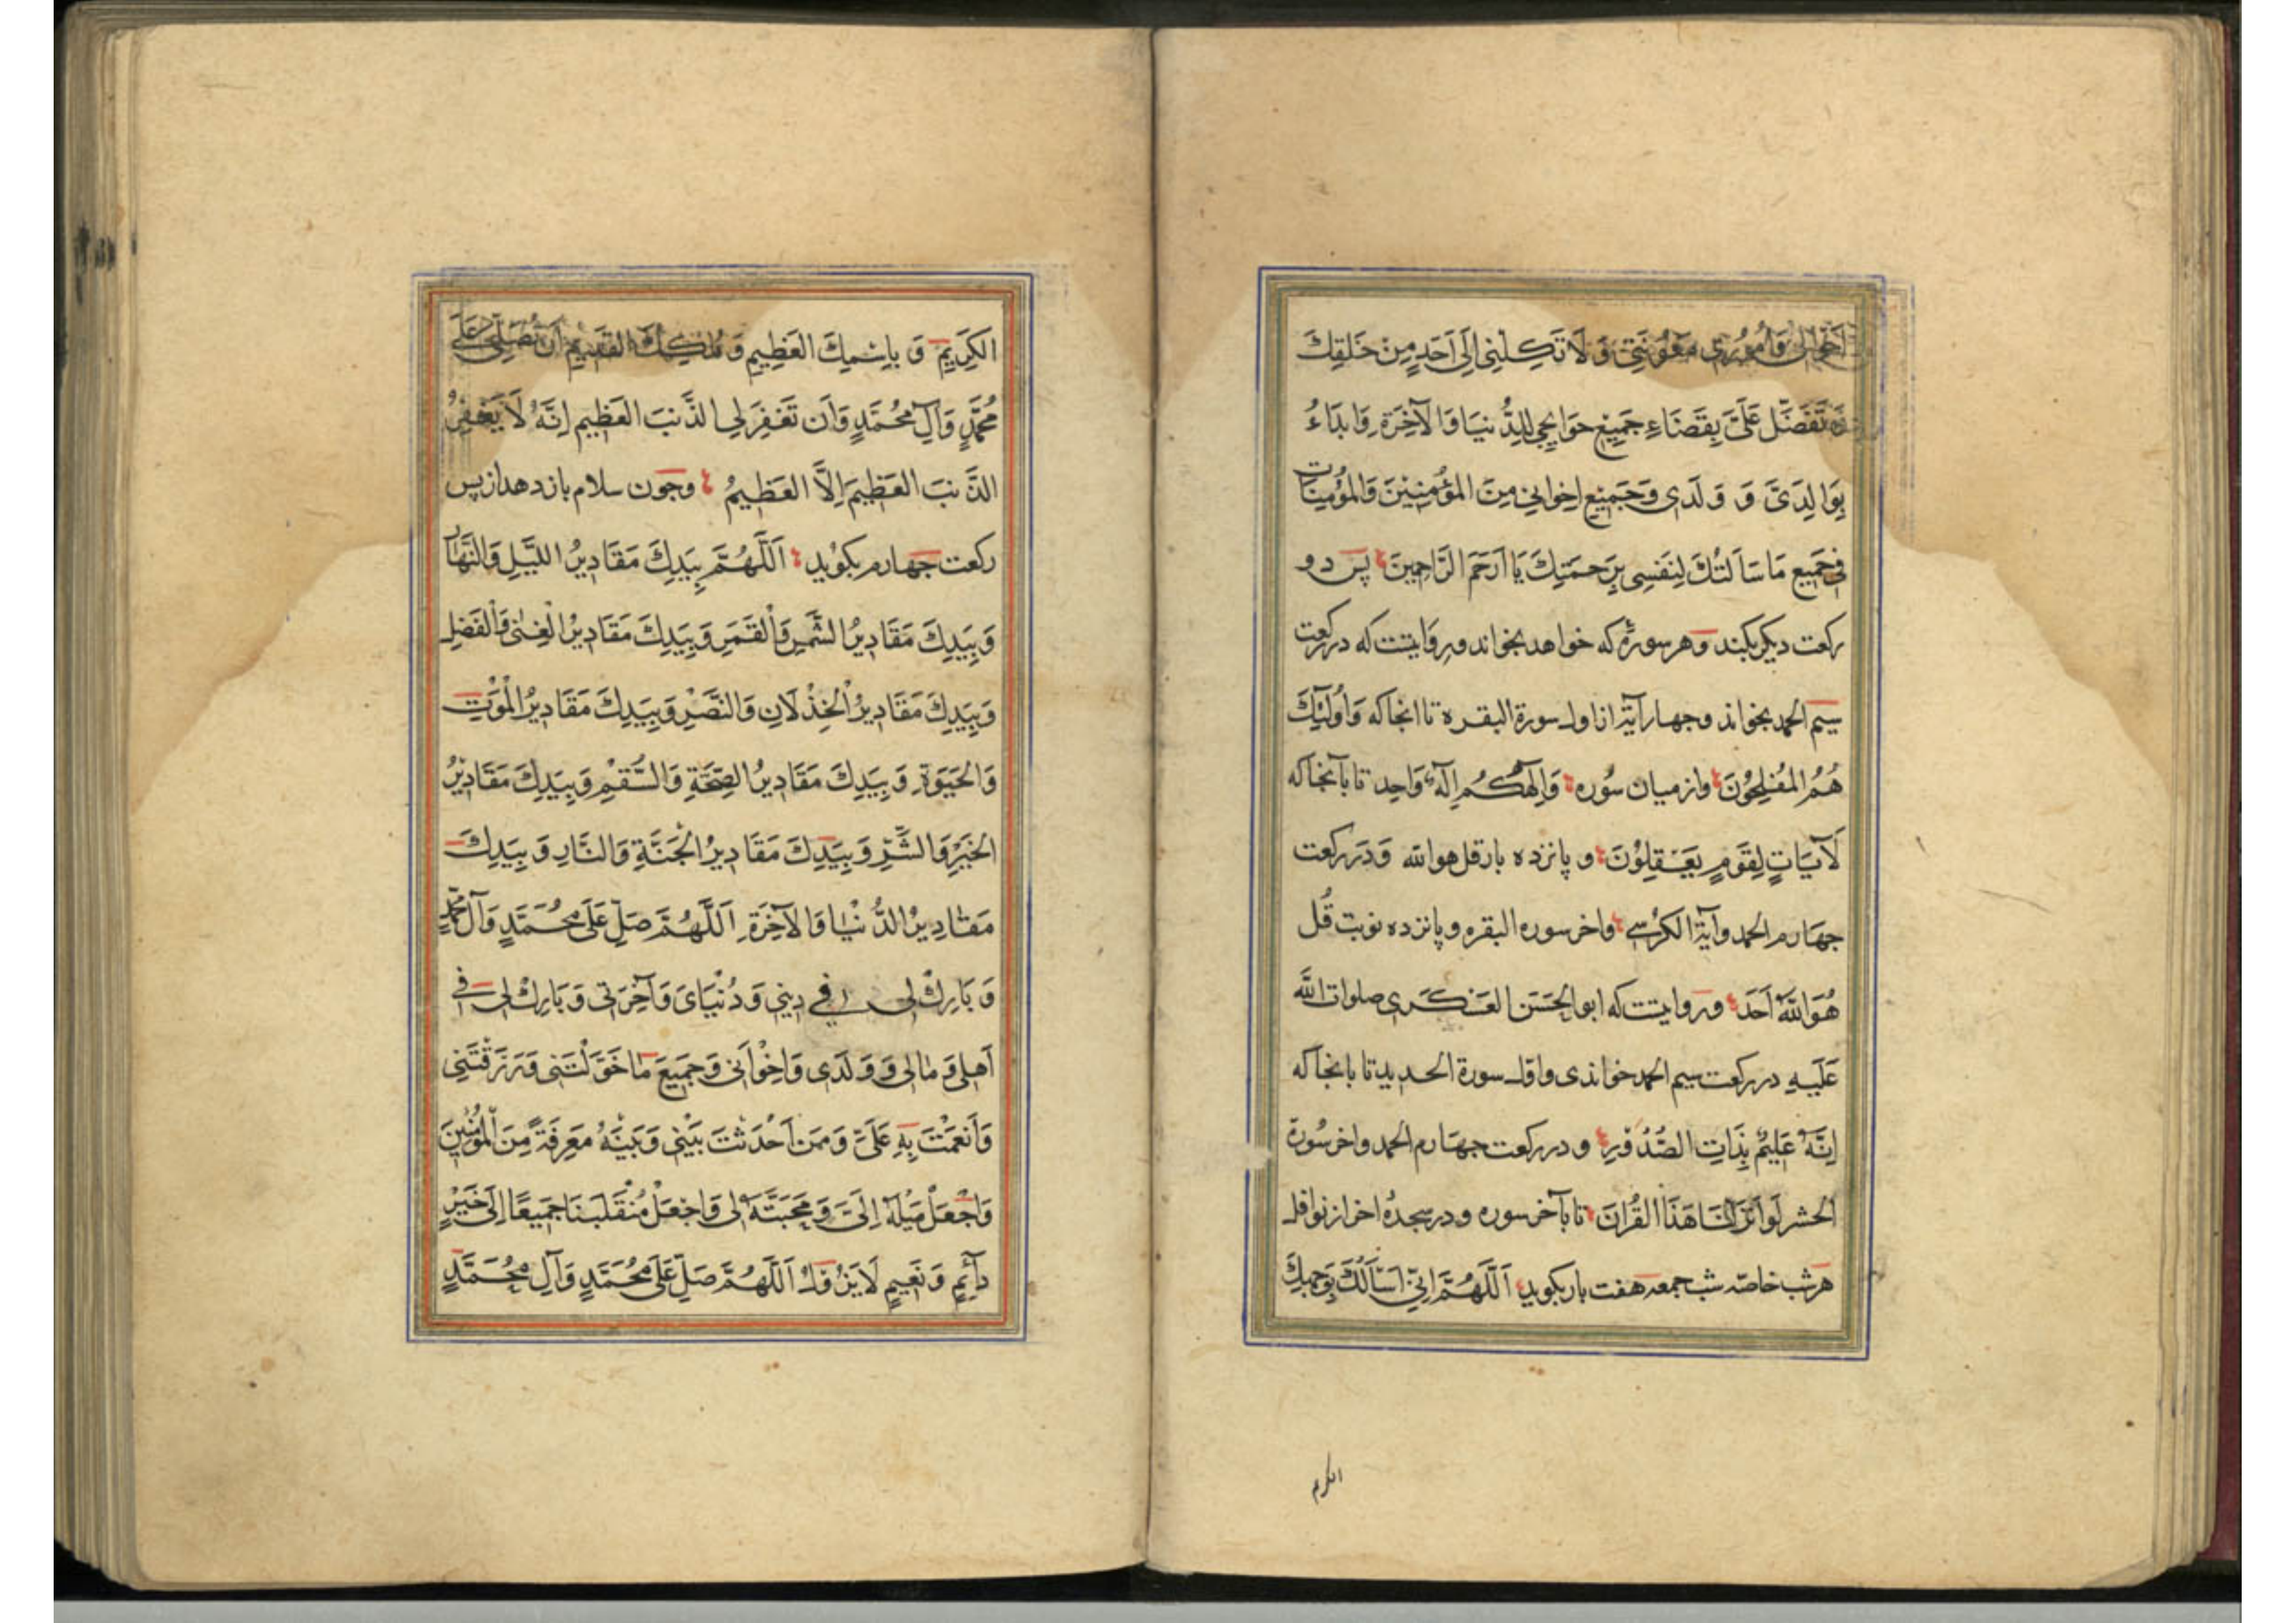 اَحْوالى وَاُمُورى مَعُونَتى وَ لَا تَكِلْنِى اِلَى اَحَدٍ مِنْ خَلقِكَ
تَفَضَّل عَلَىَّ بِقَضَاءِ جَمِيْعِ حَوَايجِى لِلدُّنيَا وَالآخِرَةِ وَابدَاءُ
بِوَالِدَىَّ وَ وَلَدِى وَجَمِيْعِ اِخوَانِى مِنَ المؤُمِنِيْنَ وَالمؤُمِنَات
فى جَميعِ مَا سَاَلتُكَ لِنَفسِى بِرَحمَتِكَ يَا اَرَحَمَ الرَّاحِمِينَ پَس دو
ركعت ديكر بكند وهر سورهٔ كه خواهد بخواند وروايتست كه در ركعت
سيم الحمد بخواند وجهار آية از اول سورة البقره تا انجا كه وَاُولئِكَ
هُمُ المُفلِحُوْنَ وازميان سُوره وَاِلهكُم اِلهٌ وَاحِد تا بآنجا كه
لَآيَاتٍ لِقَومٍ يَعقِلوُنَ و پانزده بار قل هو الله وَدَر ركعت
جهَارم الحمد وآيَة الكرُسِى واخر سوره البقره و پانزده نوبت قُل
هُوَ اللّٰهُ اَحَدَ وروايتست كه ابو الحَسَن العَسكَرى صلوات اللّٰه
عَلَيهِ در ركعت سيم الحمد خواندى واول سورة الحديد تا بانجا كه
اِنَّهُ عَلِيمٌ بِذَاتِ الصُّدُورِ و در ركعت جهَارم الحمد واخر سُورة
الحشر لَو اَنزَلنَا هَذَا القُرانَ تا بآخر سوره و در سجدهُ اخر از نوافل
هر شب خاصّه شب جمعه هفت بار بكويد اَللَّهُمَّ اِنّى اَسْاَلُكَ بِوَجهِكَ
الكرم
الكَرِيِمِ وَ بِاسْمِكَ العَظِيمِ وَ مُلكِكَ القَدِيمِ اَن تُصَلِّى عَلَى
مُحَمَّدٍ وَآلِ مُحمَّدٍ وَاَن تَغفِرَلِى الذَّنبَ العَظِيم اِنَّهُ لَا يَغفِرُ
الذَّنبَ العَظِيمَ اِلاَّ العَظِيمُ وجون سلام باز دهد از پس
ركعت جهارم بكوُيد اَللَّهُمَّ بِيَدِكَ مَقَادِيرُ اللَّيلِ وَالنَّهَار
وَ بِيَدِكَ مَقَادِيرُ الشَّمسِ وَالْقَمَرِ وَبِيَدِكَ مَقَادِيرُ الْغِنىٰ وَالْفَضلِ
وَ بِيَدِكَ مَقَادِيرُ الْخِذْلَانِ وَالنَّصْرِ وَبِيَدِكَ مَقَادِيرُ الْمَوْتِ
وَالحَيَوَةِ وَ بِيَدِكَ مَقَادِيرُ الصِّحَّةِ وَالسُّقمِ وَبِيَدِكَ مَقَادِيرُ
الخَيْرِ وَالشَّرِّ وَ بِيَدِكَ مَقَادِيرُ الجَنَّةِ وَالنَّارِ وَ بِيَدِكَ
مَقَادِيرُ الدُّنْيَا وَالآخِرَةِ اَللَّهُمَّ صَلِّ عَلَى مُحَمَّدٍ وَآلِ مُحمَّدٍ
وَ بَارِكْ لى فى دِينِى وَ دُنْيَاىَ وَآخِرَتِى وَ بَارِكْ لِى فى
اَهلِى وَ مَالِى وَ وَلَدِى وَاِخْوَانِى وَجَمِيعِ مَا خَوَّلْتَنِى وَرَزَقْتَنِى
وَاَنعَمْتَ بِهِ عَلَىَّ وَ مَن اَحْدَثتَ بَيْنِى وَ بَينَهُ مَعرِفَةً مِنَ الْمُؤْمِنِينَ
وَاجْعَلْ مَيْلَهُ اِلَىَّ وَ مَحَبَّتَهُ لِى وَاجْعَلْ مُنْقَلَبَنَا جَمِيعًا اِلَى خَيْرٍ
دَآئِمٍ وَ نَعِيمٍ لَا يَزُولُ اَللَّهُمَّ صَلِّ عَلَى مُحَمَّدٍ وَآلِ مُحَمَّدٍ